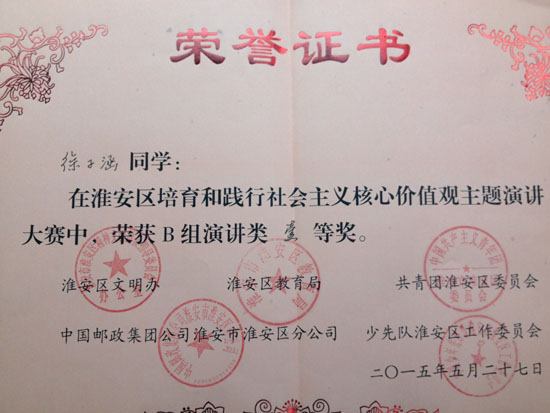 荣誉证书
徐子涵 同学：
在淮安区培育和践行社会主义核心价值观主题演讲
大赛中，荣获 B 组演讲类 壹 等奖。
淮安区文明办 淮安区教育局 共青团淮安区委员会
中国邮政集团公司淮安市淮安区分公司 少先队淮安区工作委员会
二〇一五年五月二十七日